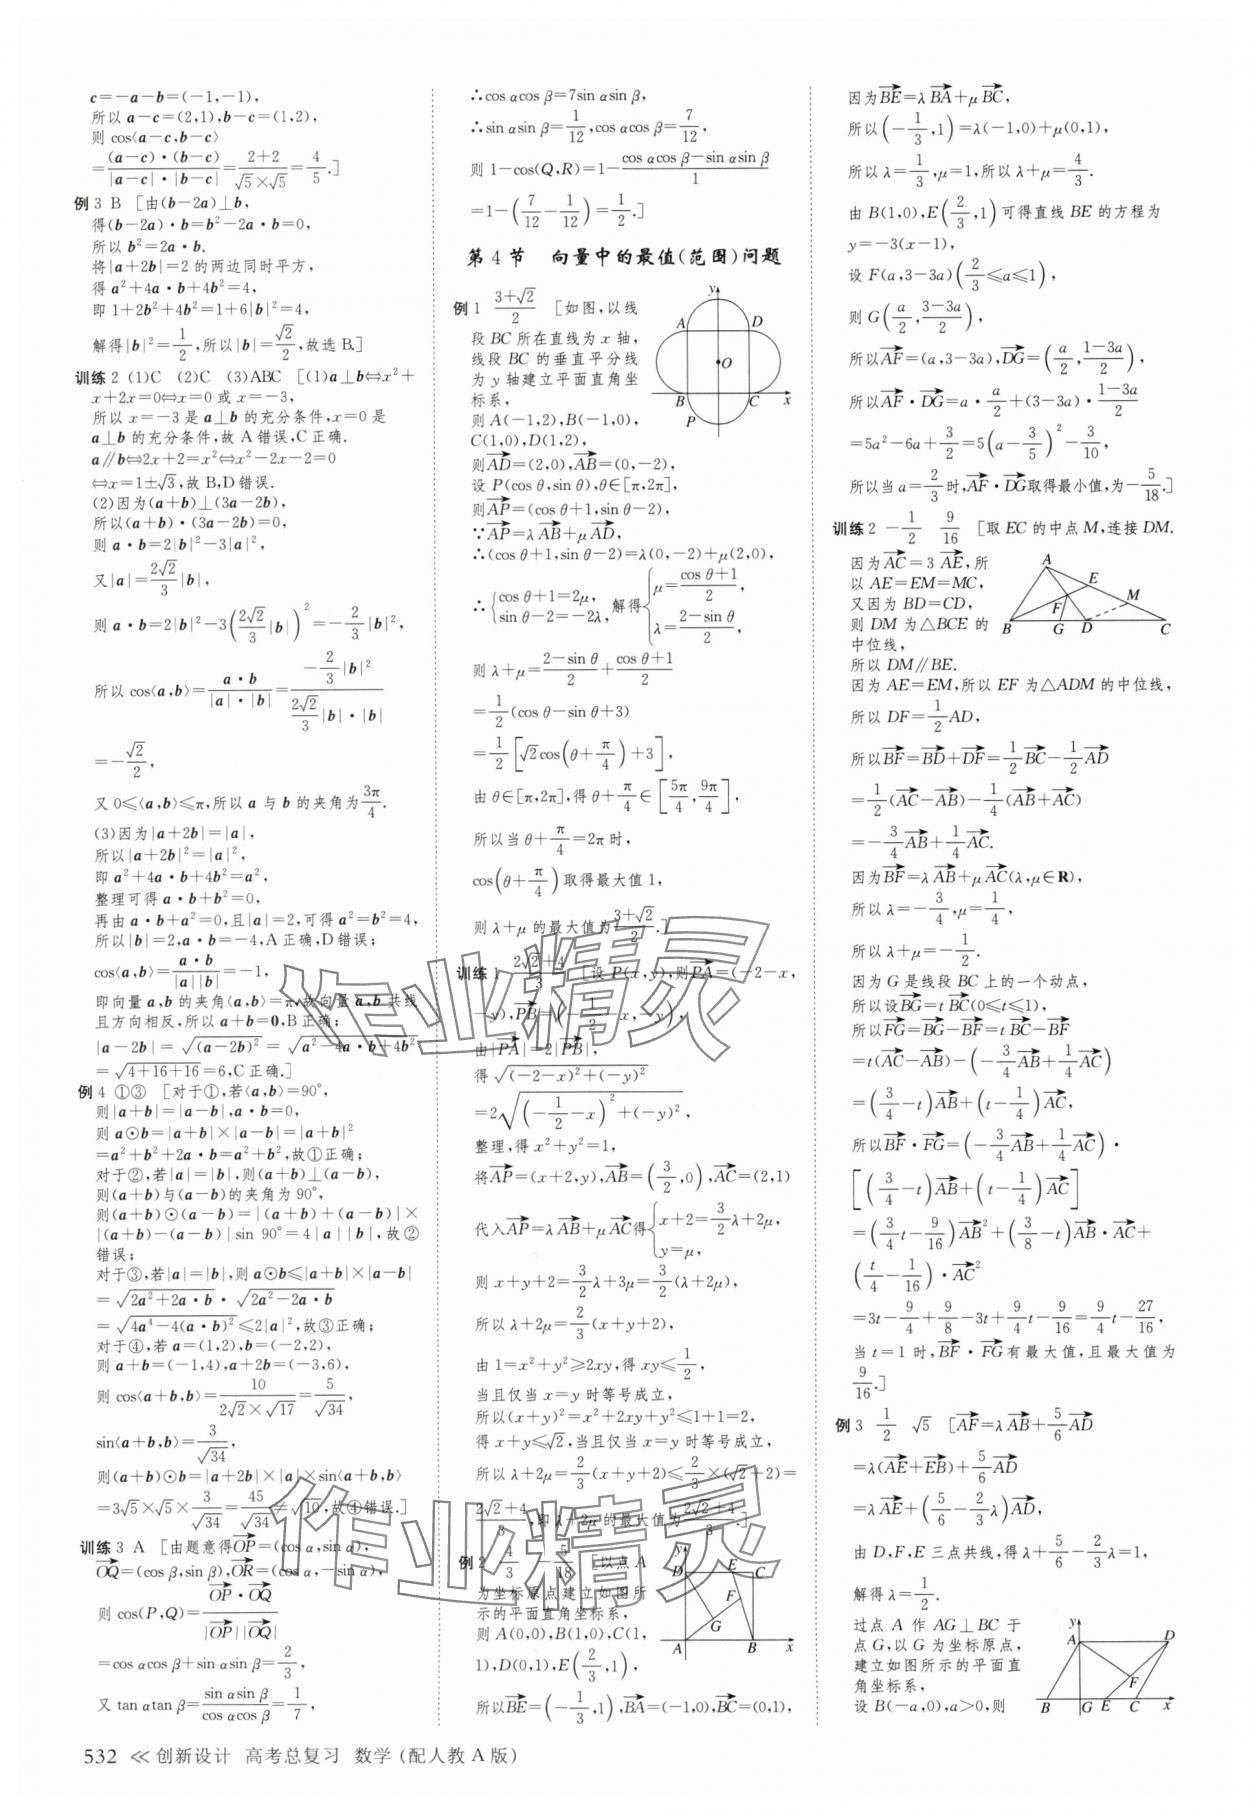 c=-a-b=(-1,-1),
所以 a-c=(2,1),b-c=(1,2),
则 cos⟨a-c,b-c⟩
=\frac{(a-c)·(b-c)}{|a-c|·|b-c|}=\frac{2+2}{√5×√5}=\frac{4}{5}.]
例 3 B [由(b-2a)⊥b,
得(b-2a)·b=b²-2a·b=0,
所以 b²=2a·b.
将|a+2b|=2 的两边同时平方,
得 a²+4a·b+4b²=4,
即 1+2b²+4b²=1+6|b|²=4,
解得|b|²=\frac{1}{2},所以|b|=\frac{√2}{2},故选 B.]
训练 2 (1)C (2)C (3)ABC [(1)a⊥b⇔x²+
x+2x=0⇔x=0 或 x=-3,
所以 x=-3 是 a⊥b 的充分条件,x=0 是
a⊥b 的充分条件,故 A 错误,C 正确.
a∥b⇔2x+2=x²⇔x²-2x-2=0
⇔x=1±√3,故 B,D 错误.
(2)因为(a+b)⊥(3a-2b),
所以(a+b)·(3a-2b)=0,
则 a·b=2|b|²-3|a|²,
又|a|=\frac{2√2}{3}|b|,
则 a·b=2|b|²-3(\frac{2√2}{3}|b|)²=-\frac{2}{3}|b|²,
所以 cos⟨a,b⟩=\frac{a·b}{|a|·|b|}=\frac{-\frac{2}{3}|b|²}{\frac{2√2}{3}|b|·|b|}
=-\frac{√2}{2},
又 0≤⟨a,b⟩≤π,所以 a 与 b 的夹角为\frac{3π}{4}.
(3)因为|a+2b|=|a|,
所以|a+2b|²=|a|²,
即 a²+4a·b+4b²=a²,
整理可得 a·b+b²=0,
再由 a·b+a²=0,且|a|=2,可得 a²=b²=4,
所以|b|=2,a·b=-4,A 正确,D 错误;
cos⟨a,b⟩=\frac{a·b}{|a||b|}=-1,
即向量 a,b 的夹角⟨a,b⟩=π,故向量 a,b 共线
且方向相反,所以 a+b=0,B 正确;
|a-2b|=√((a-2b)²)=√(a²-4a·b+4b²)
=√(4+16+16)=6,C 正确.]
例 4 ①③ [对于①,若⟨a,b⟩=90°,
则|a+b|=|a-b|,a·b=0,
则 a⊙b=|a+b|×|a-b|=|a+b|²
=a²+b²+2a·b=a²+b²,故①正确;
对于②,若|a|=|b|,则(a+b)⊥(a-b),
则(a+b)与(a-b)的夹角为 90°,
则(a+b)⊙(a-b)=|(a+b)+(a-b)|×
|(a+b)-(a-b)|sin 90°=4|a||b|,故②
错误;
对于③,若|a|=|b|,则 a⊙b≤|a+b|×|a-b|
=√(2a²+2a·b)·√(2a²-2a·b)
=√(4a⁴-4(a·b)²)≤2|a|²,故③正确;
对于④,若 a=(1,2),b=(-2,2),
则 a+b=(-1,4),a+2b=(-3,6),
则 cos⟨a+b,b⟩=\frac{10}{2√2×√17}=\frac{5}{√34},
sin⟨a+b,b⟩=\frac{3}{√34},
则(a+b)⊙b=|a+2b|×|a|×sin⟨a+b,b⟩
=3√5×√5×\frac{3}{√34}=\frac{45}{√34}≠√10,故④错误.]
训练 3 A [由题意得\vec{OP}=(cos α,sin α),
\vec{OQ}=(cos β,sin β),\vec{OR}=(cos α,-sin α),
则 cos(P,Q)=\frac{\vec{OP}·\vec{OQ}}{|\vec{OP}||\vec{OQ}|}
=cos αcos β+sin αsin β=\frac{2}{3},
又 tan αtan β=\frac{sin αsin β}{cos αcos β}=\frac{1}{7},
∴cos αcos β=7sin αsin β,
∴sin αsin β=\frac{1}{12},cos αcos β=\frac{7}{12},
则 1-cos(Q,R)=1-\frac{cos αcos β-sin αsin β}{1}
=1-(\frac{7}{12}-\frac{1}{12})=\frac{1}{2}.]
第 4 节 向量中的最值(范围)问题
例 1 \frac{3+√2}{2} [如图,以线
段 BC 所在直线为 x 轴,
线段 BC 的垂直平分线
为 y 轴建立平面直角坐
标系,
y
A
D
O
B
C
x
P
则 A(-1,2),B(-1,0),
C(1,0),D(1,2),
则\vec{AD}=(2,0),\vec{AB}=(0,-2),
设 P(cos θ,sin θ),θ∈[π,2π],
则\vec{AP}=(cos θ+1,sin θ-2),
∵\vec{AP}=λ\vec{AB}+μ\vec{AD},
∴(cos θ+1,sin θ-2)=λ(0,-2)+μ(2,0),
∴{cos θ+1=2μ, sin θ-2=-2λ, 解得{μ=\frac{cos θ+1}{2}, λ=\frac{2-sin θ}{2},
则 λ+μ=\frac{2-sin θ}{2}+\frac{cos θ+1}{2}
=\frac{1}{2}(cos θ-sin θ+3)
=\frac{1}{2}[√2cos(θ+\frac{π}{4})+3],
由 θ∈[π,2π],得 θ+\frac{π}{4}∈[\frac{5π}{4},\frac{9π}{4}],
所以当 θ+\frac{π}{4}=2π 时,
cos(θ+\frac{π}{4})取得最大值 1,
则 λ+μ 的最大值为\frac{3+√2}{2}.]
训练 1 \frac{2√2+4}{3} [设 P(x,y),则\vec{PA}=(-2-x,
-y),\vec{PB}=(-\frac{1}{2}-x,-y),
由|\vec{PA}|=2|\vec{PB}|,
得√((-2-x)²+(-y)²)
=2√((-\frac{1}{2}-x)²+(-y)²),
整理,得 x²+y²=1,
将\vec{AP}=(x+2,y),\vec{AB}=(\frac{3}{2},0),\vec{AC}=(2,1)
代入\vec{AP}=λ\vec{AB}+μ\vec{AC}得{x+2=\frac{3}{2}λ+2μ, y=μ,
则 x+y+2=\frac{3}{2}λ+3μ=\frac{3}{2}(λ+2μ),
所以 λ+2μ=\frac{2}{3}(x+y+2),
由 1=x²+y²≥2xy,得 xy≤\frac{1}{2},
当且仅当 x=y 时等号成立,
所以(x+y)²=x²+2xy+y²≤1+1=2,
得 x+y≤√2,当且仅当 x=y 时等号成立,
所以 λ+2μ=\frac{2}{3}(x+y+2)≤\frac{2}{3}×(√2+2)=
\frac{2√2+4}{3},即 λ+2μ 的最大值为\frac{2√2+4}{3}.]
例 2 \frac{4}{3} -\frac{5}{18} [以点 A
为坐标原点建立如图所
示的平面直角坐标系,
则 A(0,0),B(1,0),C(1,
1),D(0,1),E(\frac{2}{3},1),
y
D
E
C
F
G
A
B
x
所以\vec{BE}=(-\frac{1}{3},1),\vec{BA}=(-1,0),\vec{BC}=(0,1),
因为\vec{BE}=λ\vec{BA}+μ\vec{BC},
所以(-\frac{1}{3},1)=λ(-1,0)+μ(0,1),
所以 λ=\frac{1}{3},μ=1,所以 λ+μ=\frac{4}{3}.
由 B(1,0),E(\frac{2}{3},1)可得直线 BE 的方程为
y=-3(x-1),
设 F(a,3-3a)(\frac{2}{3}≤a≤1),
则 G(\frac{a}{2},\frac{3-3a}{2}),
所以\vec{AF}=(a,3-3a),\vec{DG}=(\frac{a}{2},\frac{1-3a}{2}),
所以\vec{AF}·\vec{DG}=a·\frac{a}{2}+(3-3a)·\frac{1-3a}{2}
=5a²-6a+\frac{3}{2}=5(a-\frac{3}{5})²-\frac{3}{10},
所以当 a=\frac{2}{3}时,\vec{AF}·\vec{DG}取得最小值,为-\frac{5}{18}.]
训练 2 -\frac{1}{2} \frac{9}{16} [取 EC 的中点 M,连接 DM.
因为\vec{AC}=3\vec{AE},所
以 AE=EM=MC,
又因为 BD=CD,
则 DM 为△BCE 的
中位线,
A
E
M
F
B
G
D
C
所以 DM∥BE.
因为 AE=EM,所以 EF 为△ADM 的中位线,
所以 DF=\frac{1}{2}AD,
所以\vec{BF}=\vec{BD}+\vec{DF}=\frac{1}{2}\vec{BC}-\frac{1}{2}\vec{AD}
=\frac{1}{2}(\vec{AC}-\vec{AB})-\frac{1}{4}(\vec{AB}+\vec{AC})
=-\frac{3}{4}\vec{AB}+\frac{1}{4}\vec{AC}.
因为\vec{BF}=λ\vec{AB}+μ\vec{AC}(λ,μ∈R),
所以 λ=-\frac{3}{4},μ=\frac{1}{4},
所以 λ+μ=-\frac{1}{2}.
因为 G 是线段 BC 上的一个动点,
所以设\vec{BG}=t\vec{BC}(0≤t≤1),
所以\vec{FG}=\vec{BG}-\vec{BF}=t\vec{BC}-\vec{BF}
=t(\vec{AC}-\vec{AB})-(-\frac{3}{4}\vec{AB}+\frac{1}{4}\vec{AC})
=(\frac{3}{4}-t)\vec{AB}+(t-\frac{1}{4})\vec{AC},
所以\vec{BF}·\vec{FG}=(-\frac{3}{4}\vec{AB}+\frac{1}{4}\vec{AC})·
[(\frac{3}{4}-t)\vec{AB}+(t-\frac{1}{4})\vec{AC}]
=(\frac{3}{4}t-\frac{9}{16})\vec{AB}²+(\frac{3}{8}-t)\vec{AB}·\vec{AC}+
(\frac{t}{4}-\frac{1}{16})·\vec{AC}²
=3t-\frac{9}{4}+\frac{9}{8}-3t+\frac{9}{4}t-\frac{9}{16}=\frac{9}{4}t-\frac{27}{16},
当 t=1 时,\vec{BF}·\vec{FG}有最大值,且最大值为
\frac{9}{16}.]
例 3 \frac{1}{2} √5 [\vec{AF}=λ\vec{AB}+\frac{5}{6}\vec{AD}
=λ(\vec{AE}+\vec{EB})+\frac{5}{6}\vec{AD}
=λ\vec{AE}+(\frac{5}{6}-\frac{2}{3}λ)\vec{AD},
由 D,F,E 三点共线,得 λ+\frac{5}{6}-\frac{2}{3}λ=1,
解得 λ=\frac{1}{2}.
过点 A 作 AG⊥BC 于
点 G,以 G 为坐标原点,
建立如图所示的平面直
角坐标系,
设 B(-a,0),a>0,则
y
A
D
F
B
G
E
C
x
532 ≪ 创新设计 高考总复习 数学(配人教 A 版)
作业精灵
作业精灵